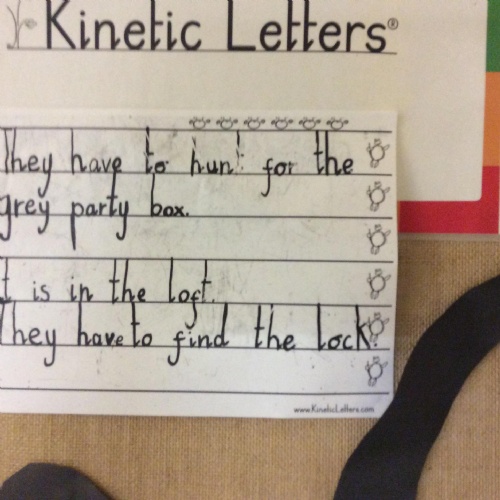 Kinetic Letters®
They have to hunt for the
grey party box.
t is in the loft.
They have to find the lock.
www.KineticLetters.com